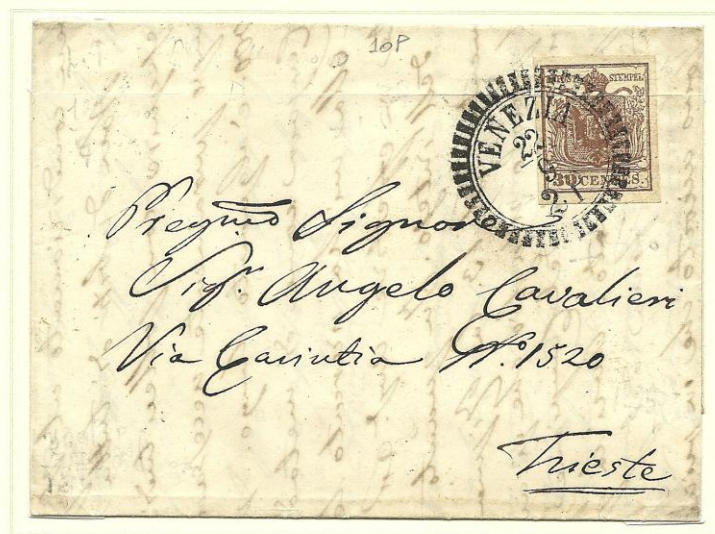 10P
STEMPEL
VENEZIA
22
30 CENTES.
Pregmo Signore
Sigr. Angelo Cavalieri
Via Carintia No. 1520
Trieste